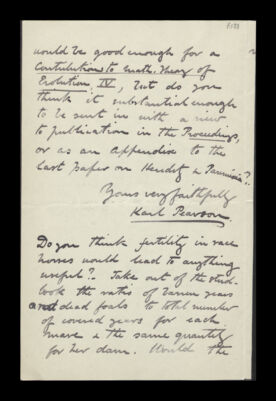 would be good enough for a
Contributions to Math. Theory of
Evolution IV, but do you
think it substantial enough
to be sent in with a view
to publication in the Proceedings,
or as an Appendix to the
last paper on Heredity & Panmixia?
Yours very faithfully
Karl Pearson.
Do you think fertility in race
horses would lead to anything
useful? Take out of the stud-
book the ratio of barren years
and dead foals to total number
of covered years for each
mare & the same quantity
for her dam. Would the